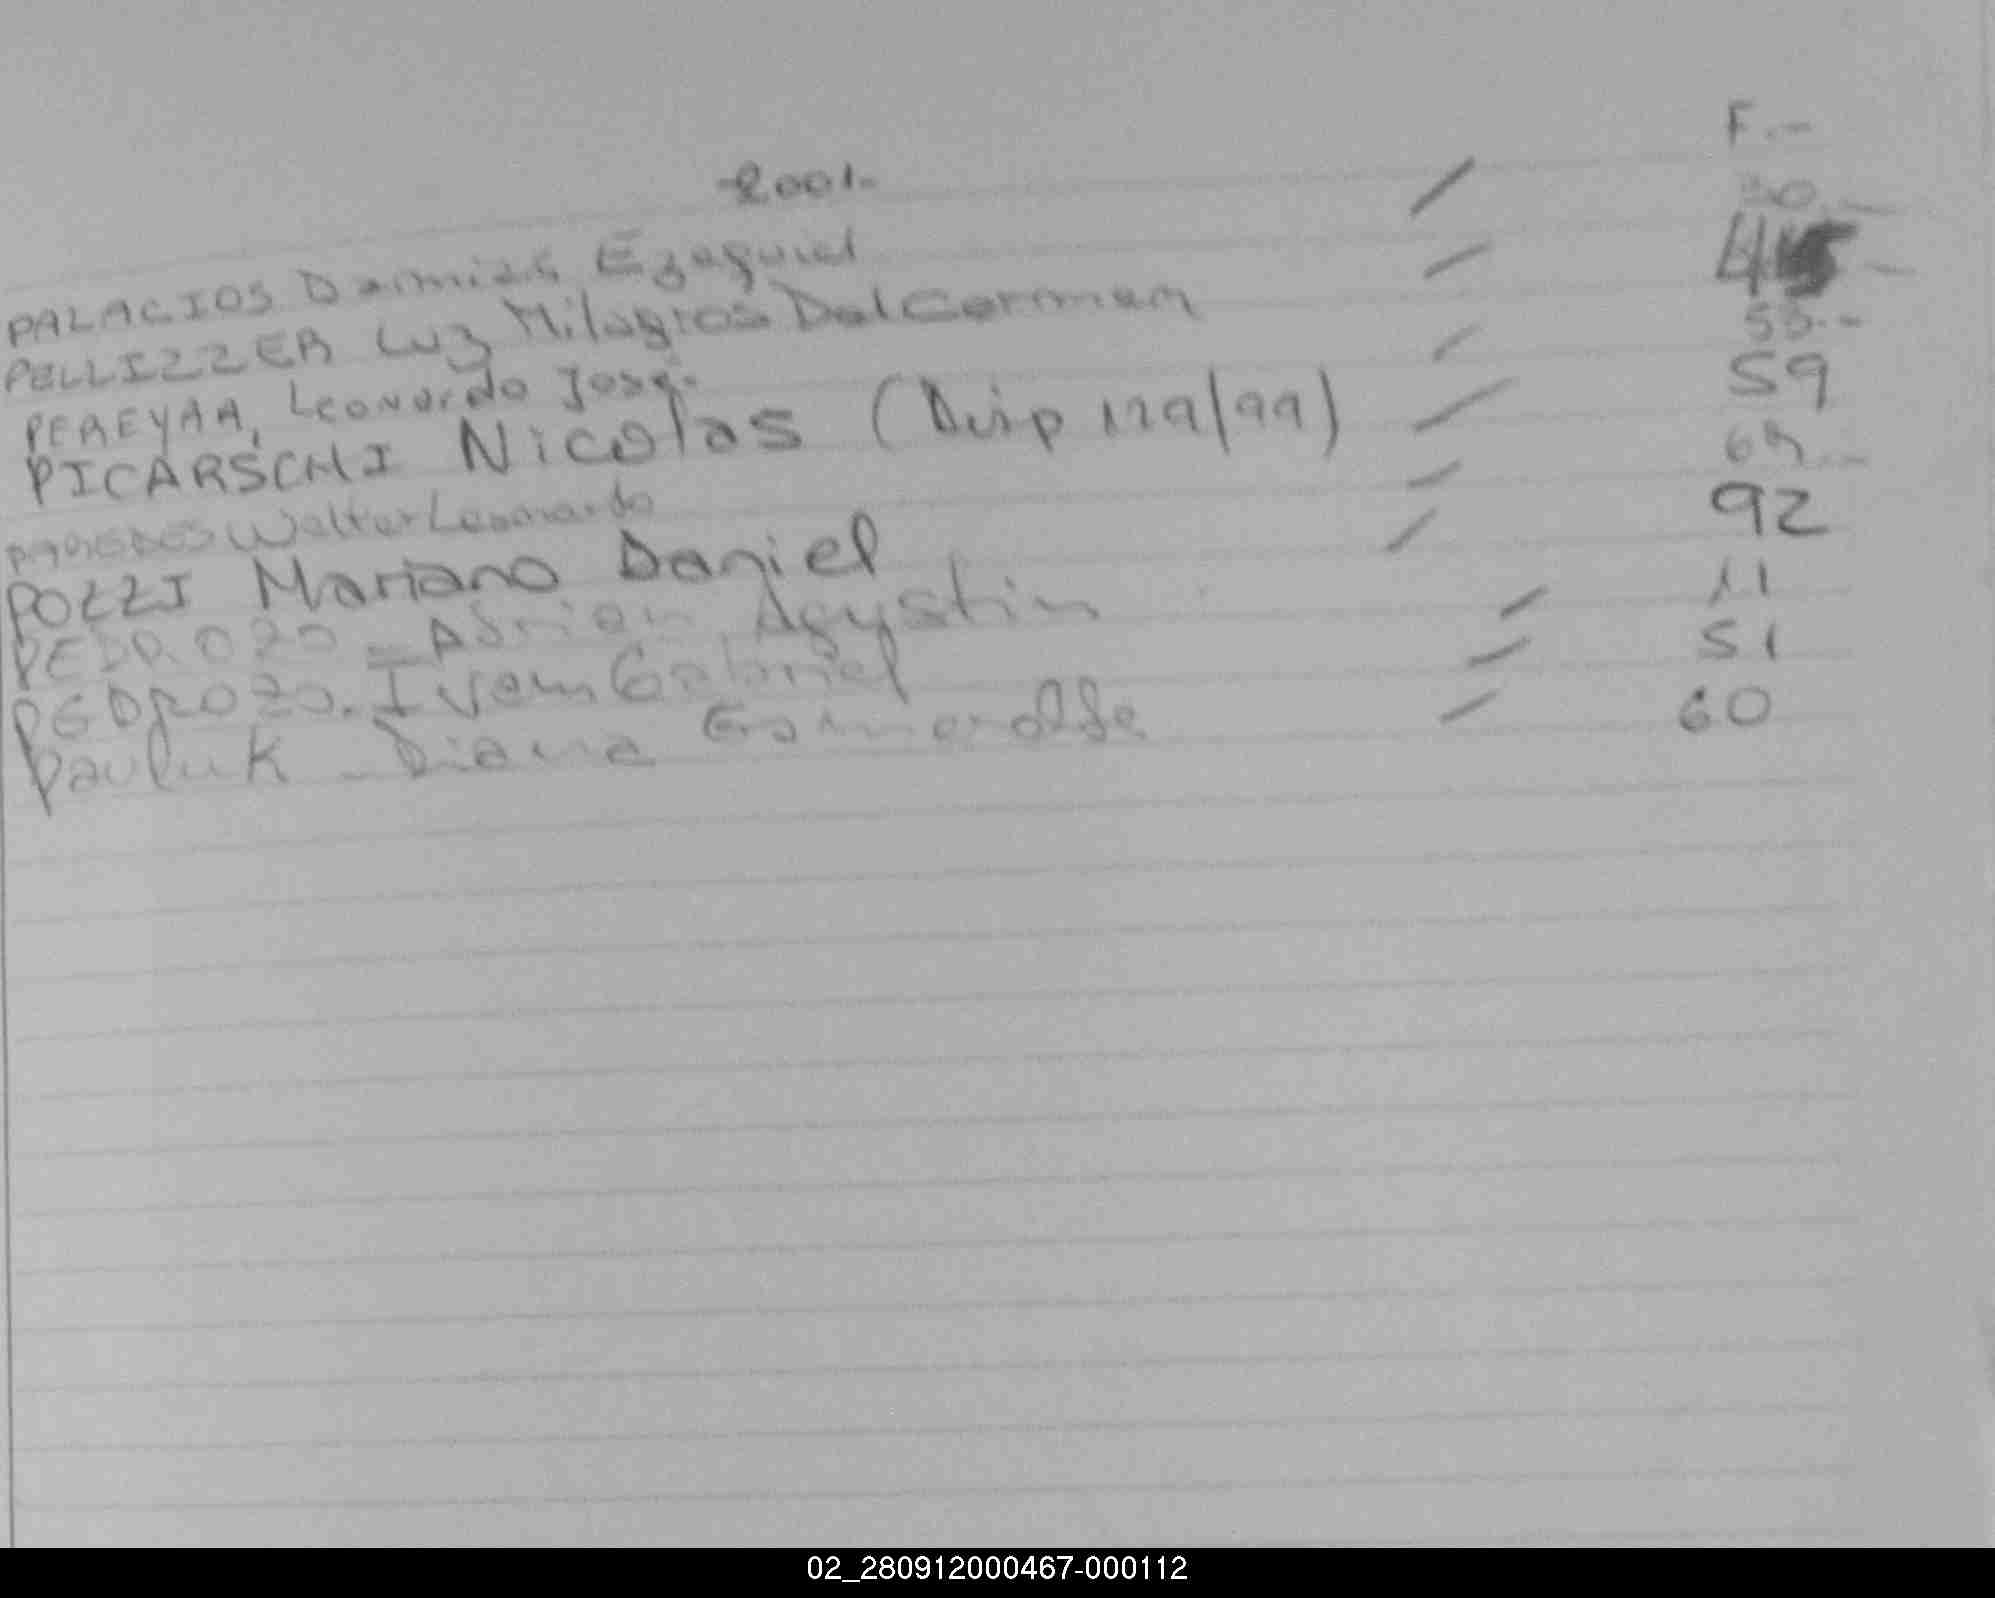 F.-
-2001-
PALACIOS Damian Ezequiel
PELLIZZER Luz Milagros Del Carmen 45-
PEREYRA, Leonardo José.
PICARSCHI Nicolas (Disp 129/99) 59
PAREDES Walter Leonardo
POZZI Mariano Daniel 92
PEDROZO Adrian Agustin 11
PEDROZO. Ivan Gabriel 51
Pauluk Diana 60
02_280912000467-000112